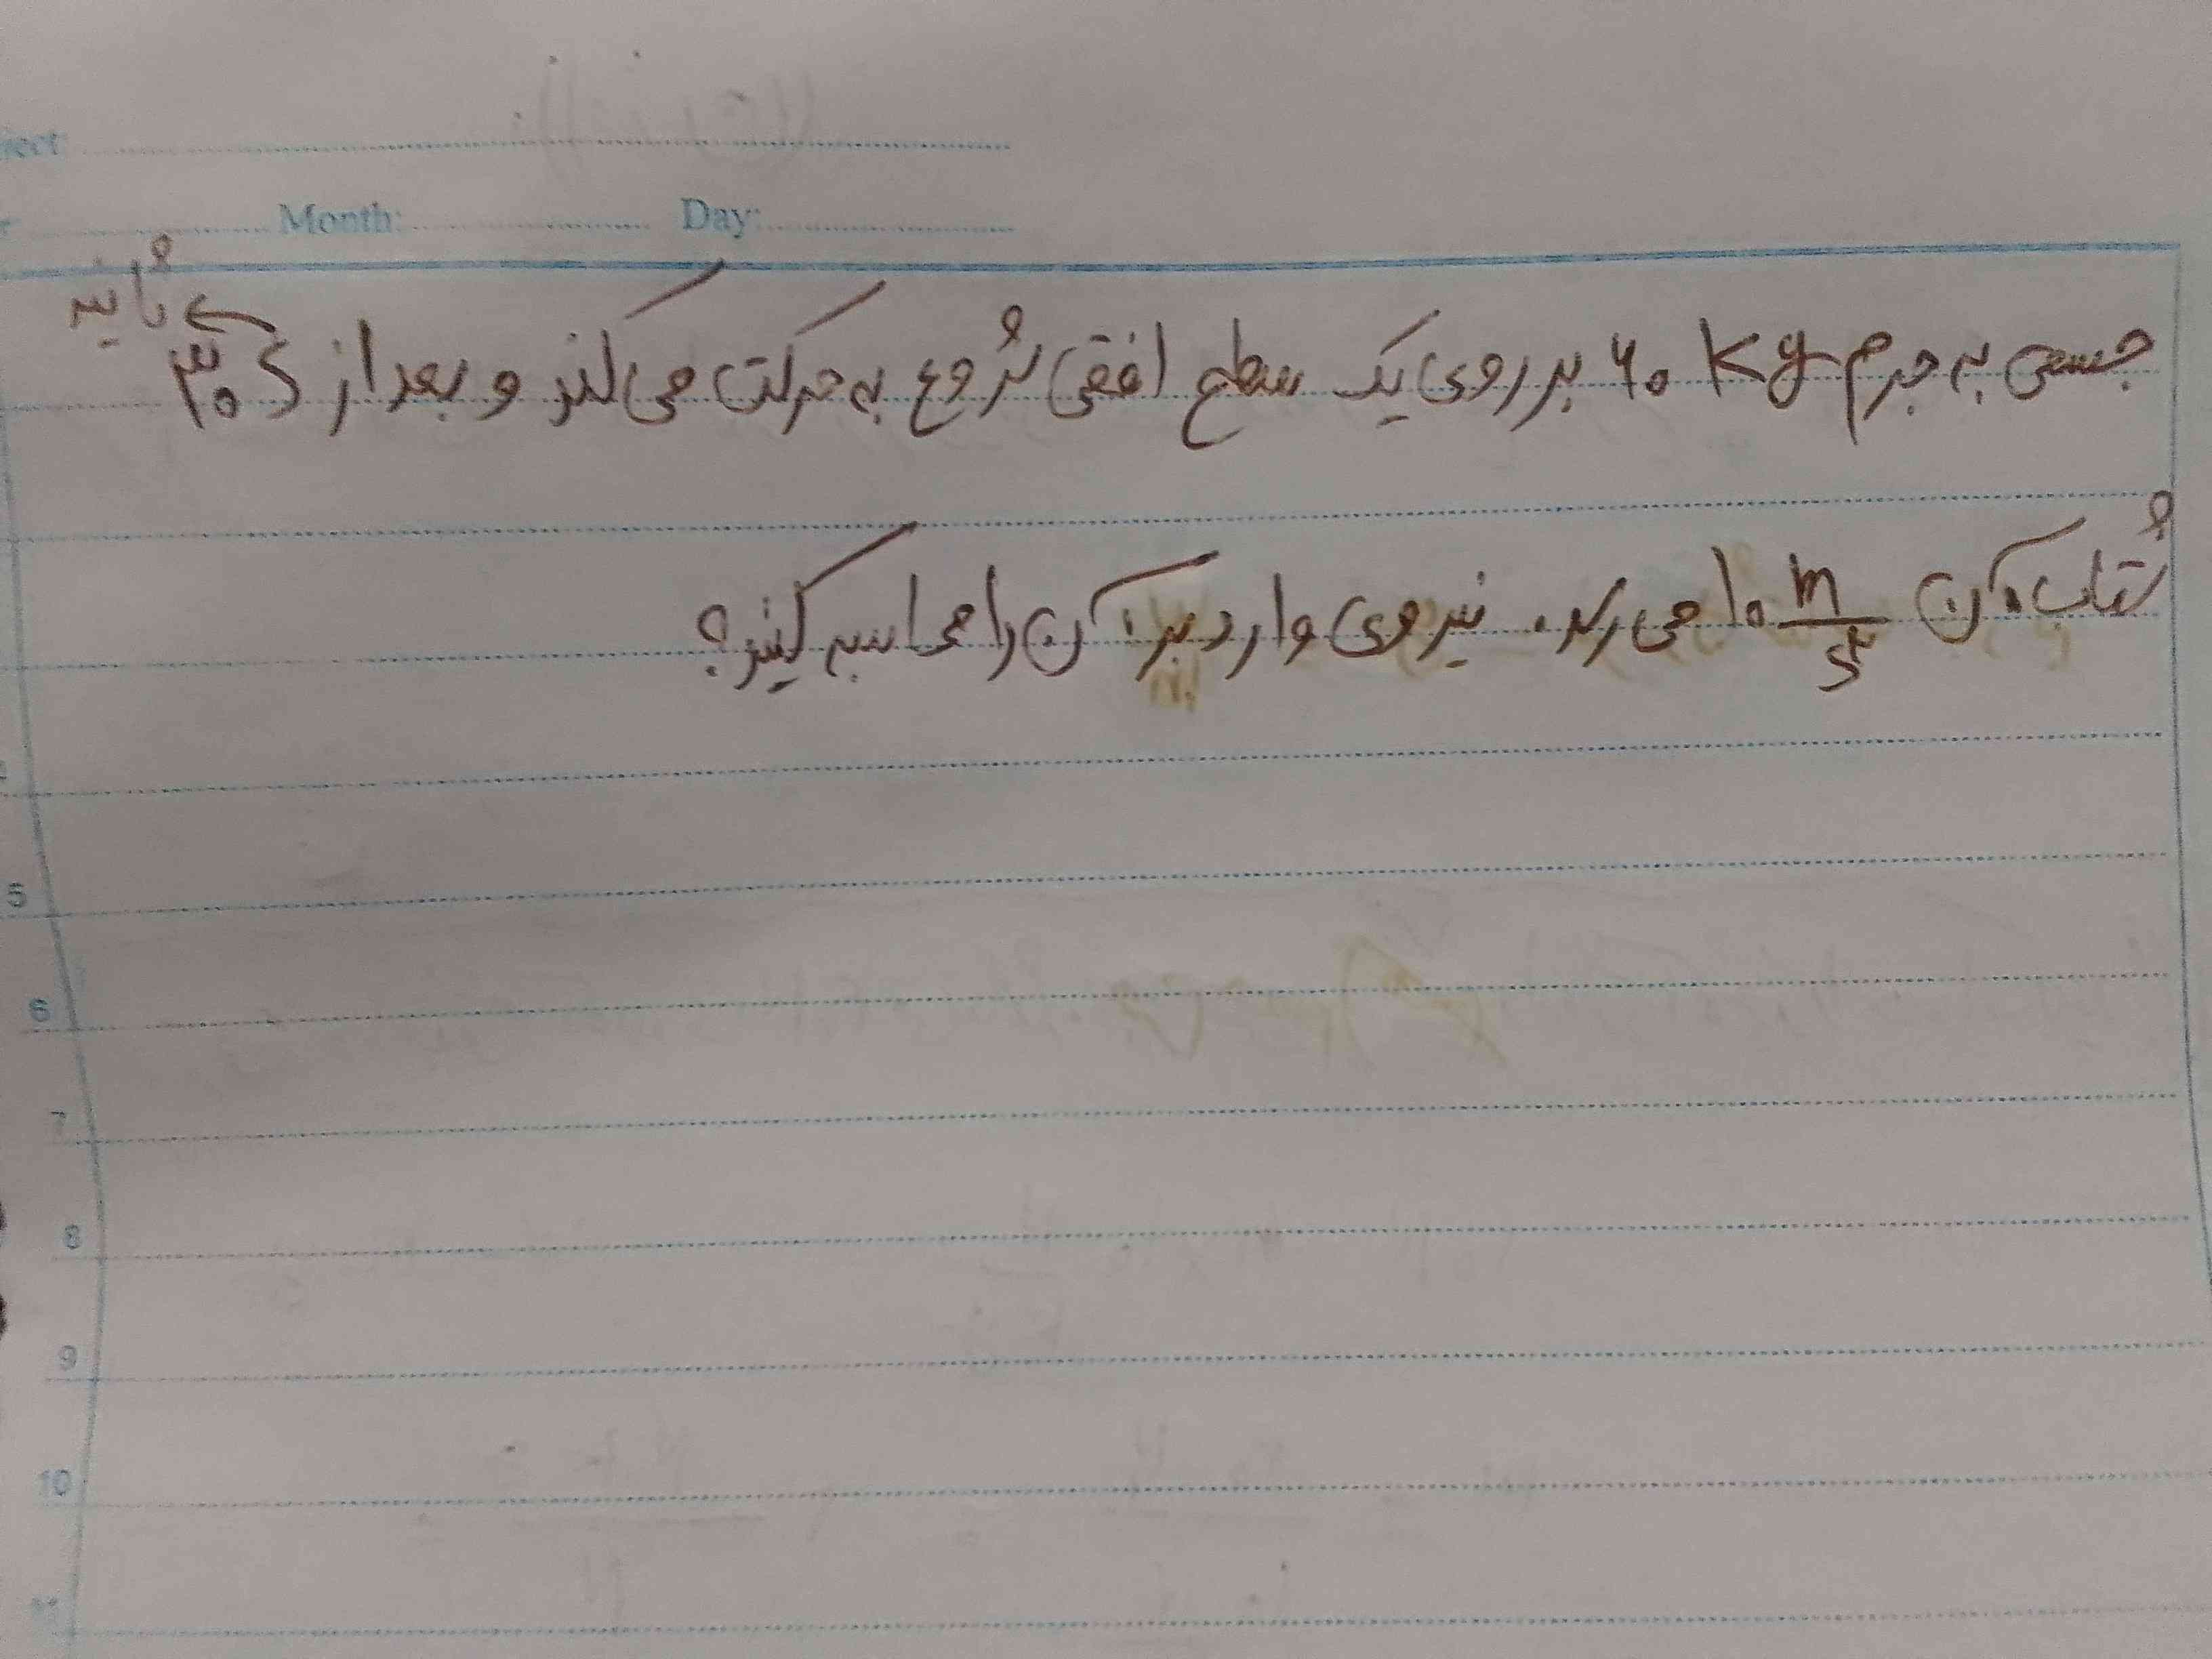 Month: Day:
ثانیه
جسمی به جرم ۶۰ kg بر روی یک سطح افقی شروع به حرکت می کند و بعد از ۳۰ s
شتاب آن ۱۰ m/s² می رسد. نیروی وارد بر آن را محاسبه کنید؟
5
6
7
8
9
10
11